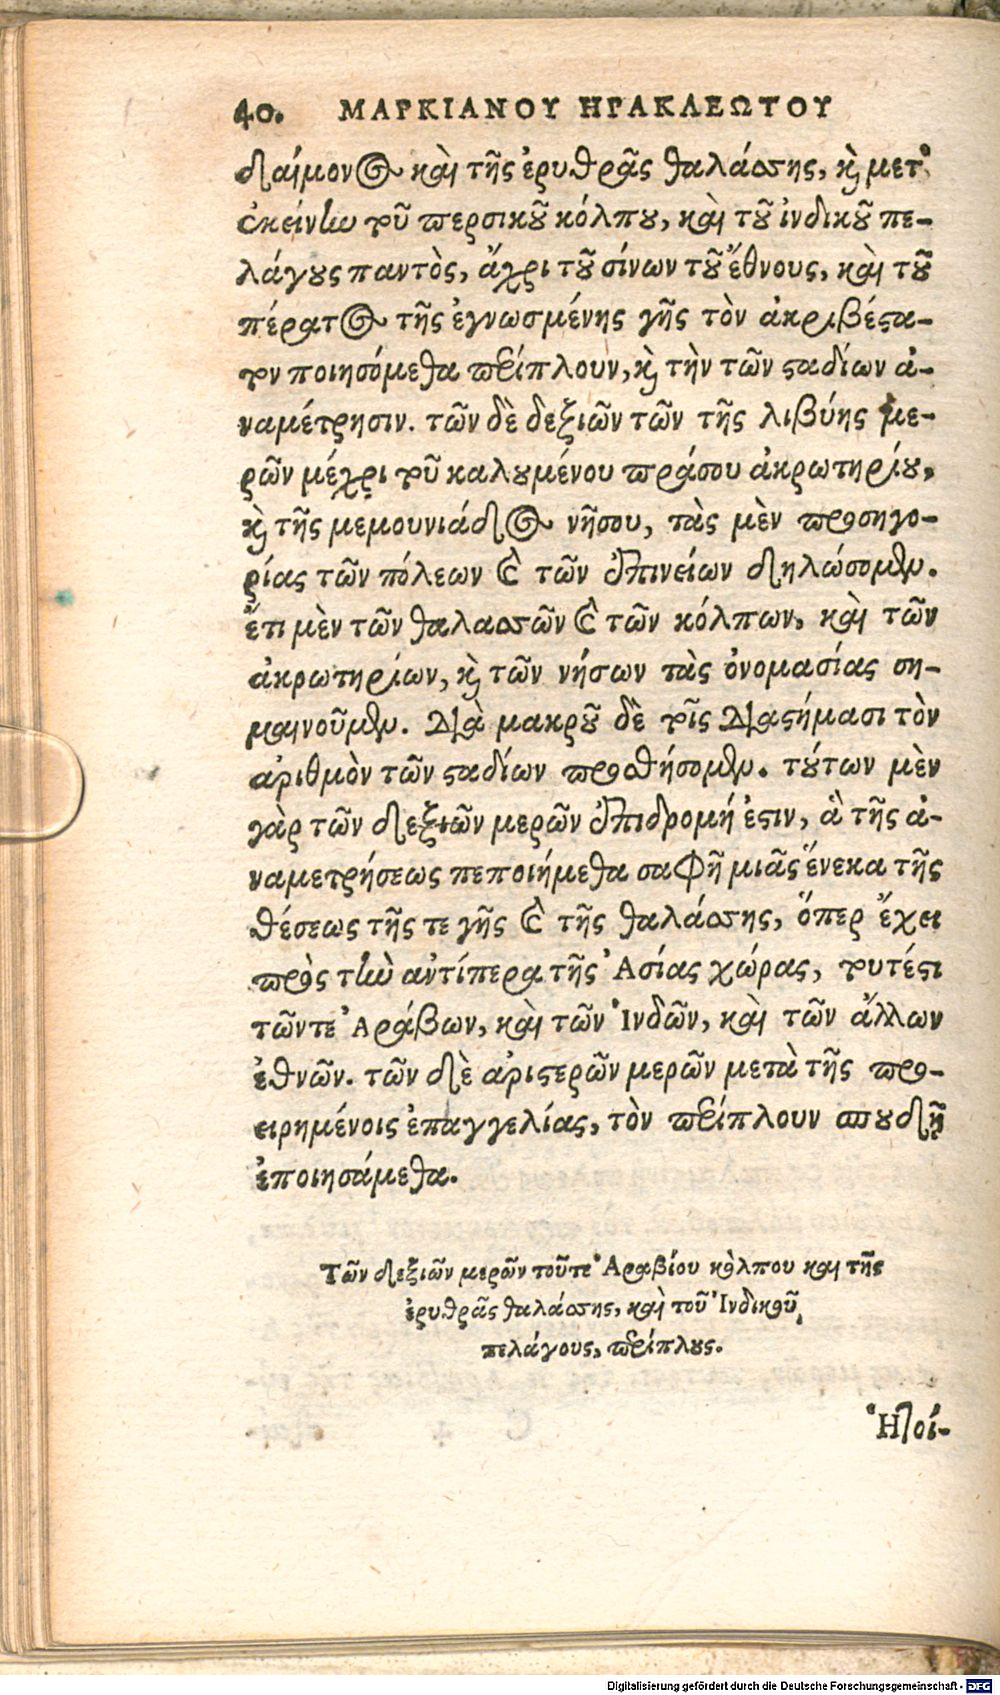 40. ΜΑΡΚΙΑΝΟΥ ΗΡΑΚΛΕΩΤΟΥ
δαίμονος καὶ τῆς ἐρυθρᾶς θαλάσσης, καὶ μετ'
ἐκείνην τοῦ περσικοῦ κόλπου, καὶ τοῦ ἰνδικοῦ πε-
λάγους παντὸς, ἄχρι τοῦ σίνων τοῦ ἔθνους, καὶ τοῦ
πέρατος τῆς ἐγνωσμένης γῆς τὸν ἀκριβέστα-
τον ποιησόμεθα περίπλουν, καὶ τὴν τῶν σταδίων ἀ-
ναμέτρησιν. τῶν δὲ δεξιῶν τῶν τῆς λιβύης με-
ρῶν μέχρι τοῦ καλουμένου πράσου ἀκρωτηρίου,
καὶ τῆς μεμουνιάδος νήσου, τὰς μὲν προσηγο-
ρίας τῶν πόλεων καὶ τῶν ἐπινείων δηλώσομεν.
ἔτι μὲν τῶν θαλασσῶν καὶ τῶν κόλπων, καὶ τῶν
ἀκρωτηρίων, καὶ τῶν νήσων τὰς ὀνομασίας ση-
μαινοῦμεν. Διὰ μακροῦ δὲ τοῖς Διαστήμασι τὸν
ἀριθμὸν τῶν σταδίων προσθήσομεν. τούτων μὲν
γὰρ τῶν δεξιῶν μερῶν ἐπιδρομή ἐστιν, ἃ τῆς ἀ-
ναμετρήσεως πεποιήμεθα σαφῆ μιᾶς ἕνεκα τῆς
θέσεως τῆς τε γῆς καὶ τῆς θαλάσσης, ὅπερ ἔχει
πρὸς τὴν ἀντίπερα τῆς Ἀσίας χώρας, τουτέστι
τῶντε Ἀράβων, καὶ τῶν Ἰνδῶν, καὶ τῶν ἄλλων
ἐθνῶν. τῶν δὲ ἀριστερῶν μερῶν μετὰ τῆς προ-
ειρημένοις ἐπαγγελίας, τὸν περίπλουν σπουδῇ
ἐποιησάμεθα.
Τῶν δεξιῶν μερῶν τοῦτε Ἀραβίου κόλπου καὶ τῆς
ἐρυθρᾶς θαλάσσης, καὶ τοῦ Ἰνδικοῦ
πελάγους, περίπλους.
Ἡ λοί-
Digitalisierung gefördert durch die Deutsche Forschungsgemeinschaft - DFG